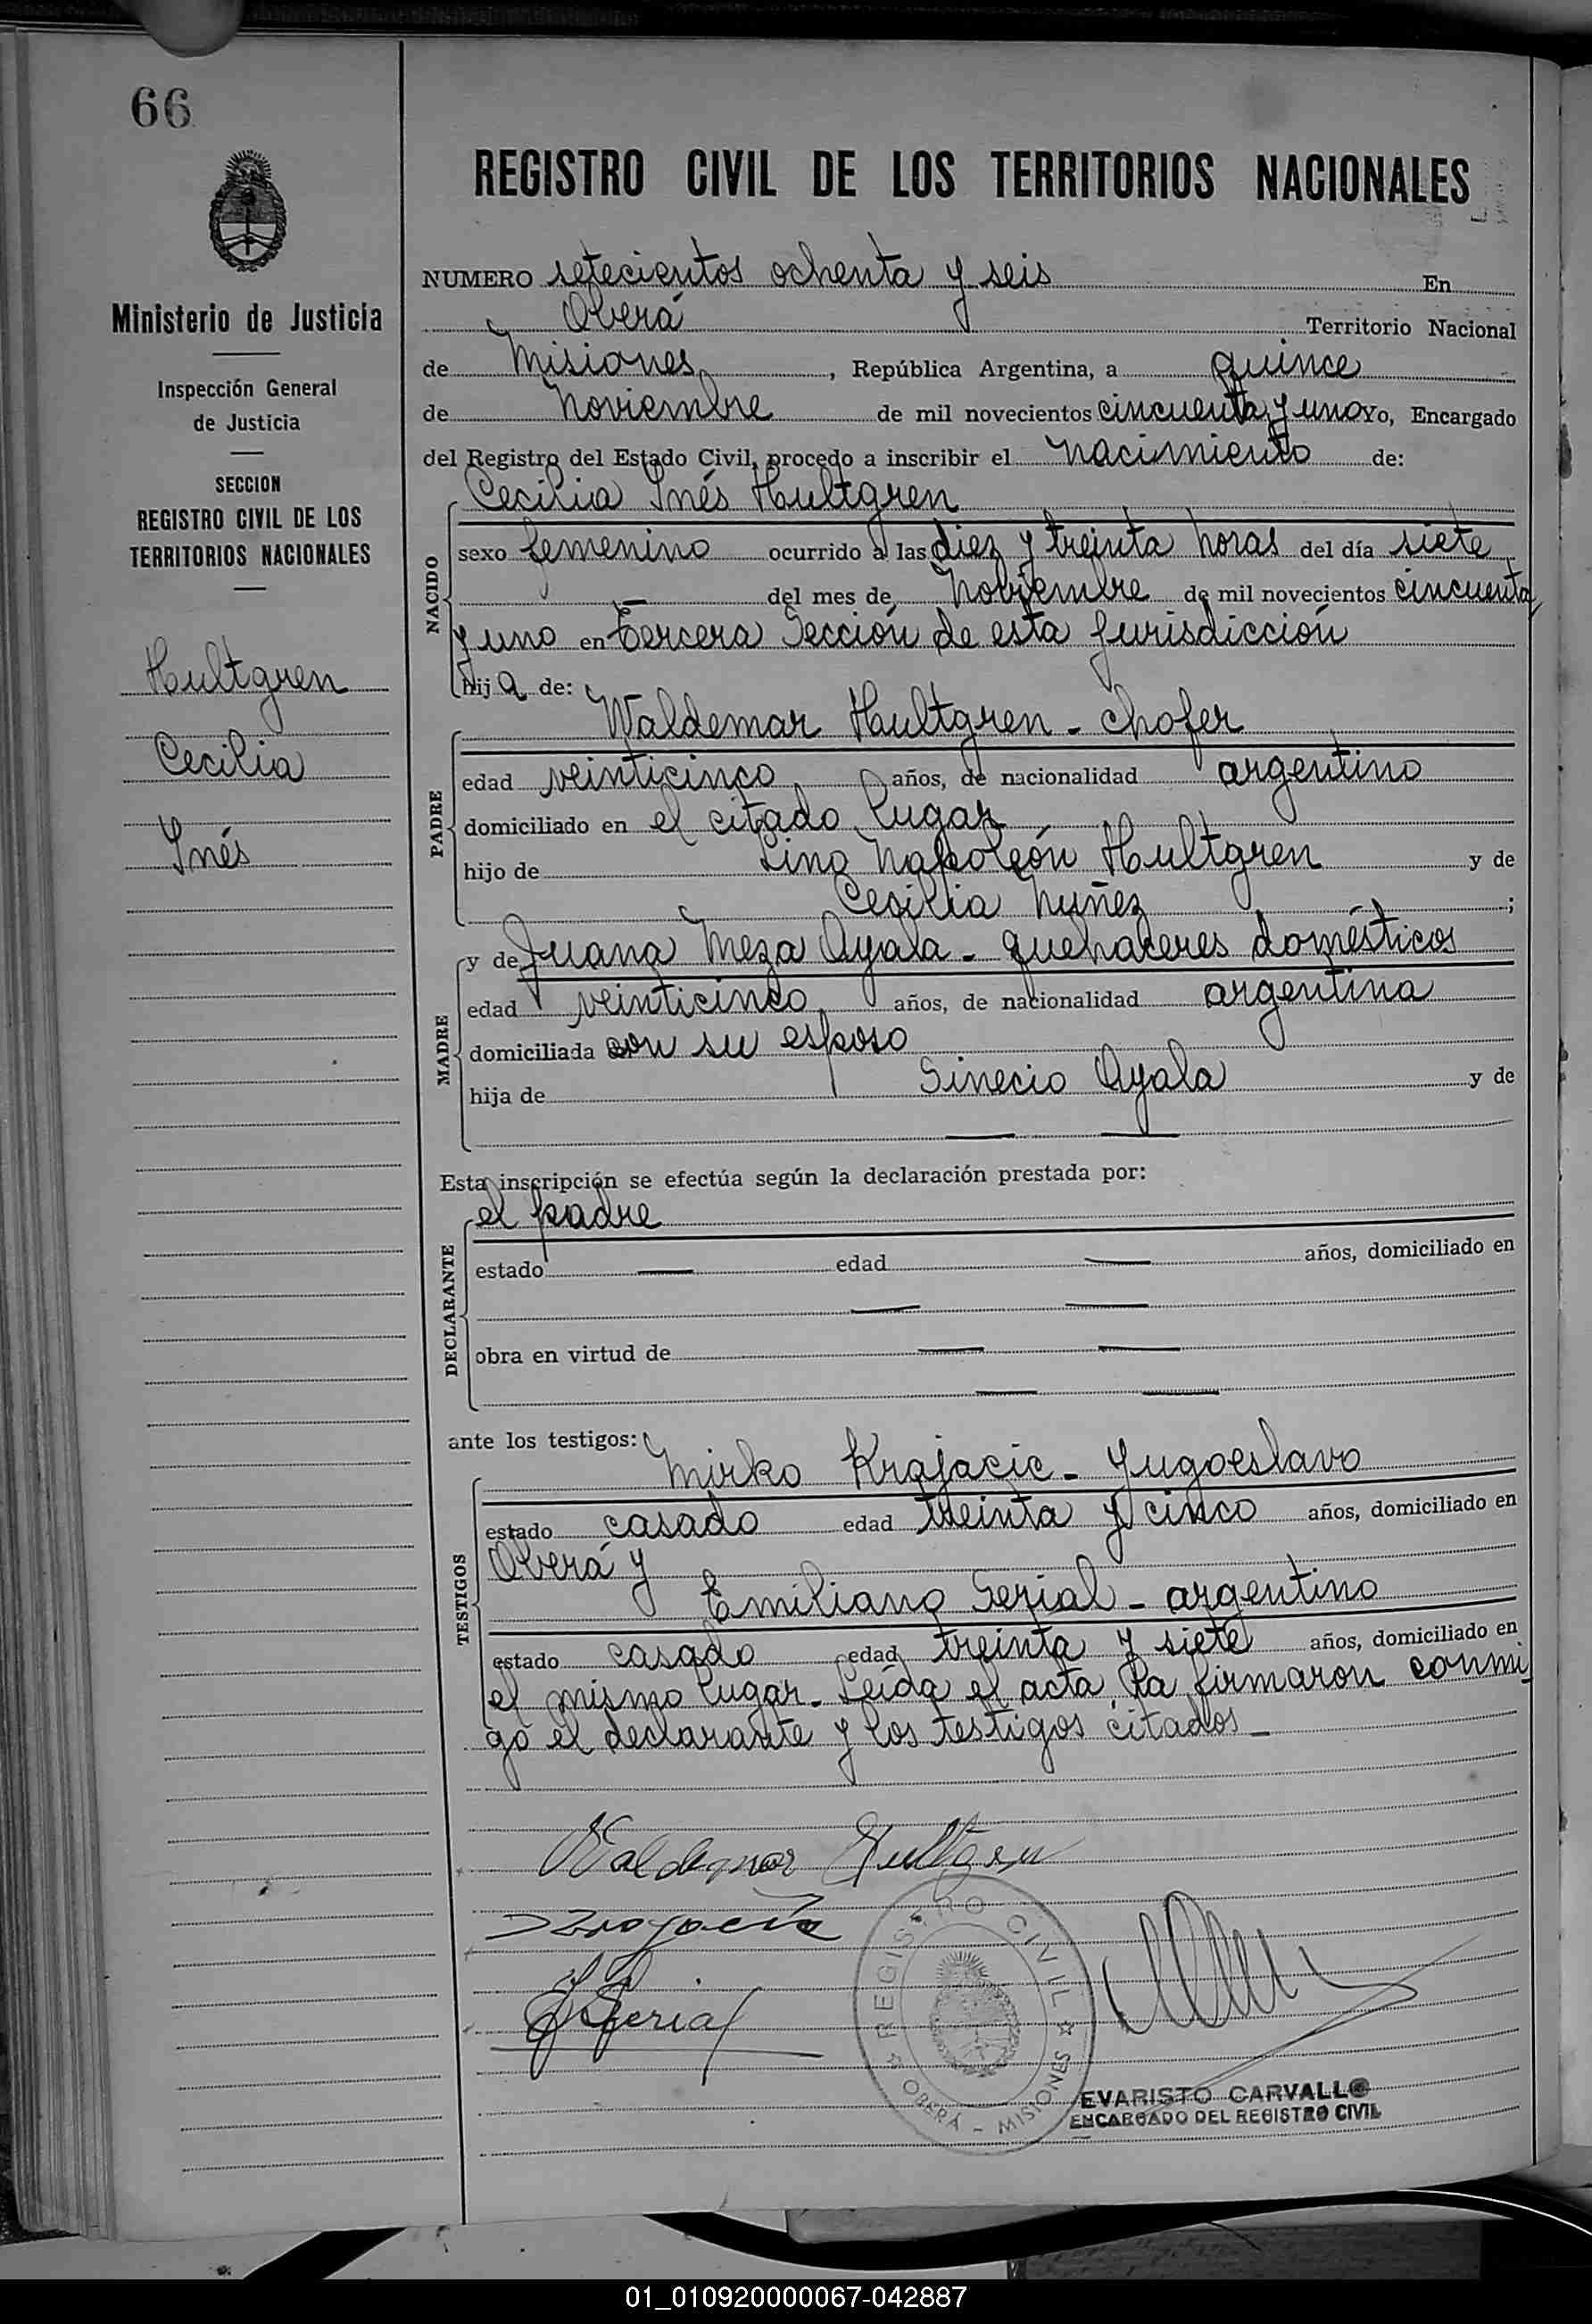 66
REGISTRO CIVIL DE LOS TERRITORIOS NACIONALES
Ministerio de Justicia
Inspección General
de Justicia
SECCION
REGISTRO CIVIL DE LOS
TERRITORIOS NACIONALES
Hultgren
Cecilia
Inés
NUMERO setecientos ochenta y seis En
Oberá Territorio Nacional
de Misiones, República Argentina, a quince
de Noviembre de mil novecientos cincuenta y uno Yo, Encargado
del Registro del Estado Civil, procedo a inscribir el nacimiento de:
NACIDO
Cecilia Inés Hultgren
sexo femenino ocurrido a las diez y treinta horas del día siete
— del mes de Noviembre de mil novecientos cincuenta
y uno en Tercera Sección de esta jurisdicción
hija de:
PADRE
Waldemar Hultgren - chofer
edad veinticinco años, de nacionalidad argentino
domiciliado en el citado lugar
hijo de Lino Napoleón Hultgren y de
Cecilia Nuñez ;
MADRE
y de Juana Meza Ayala - quehaceres domésticos
edad veinticinco años, de nacionalidad argentina
domiciliada con su esposo
hija de Sinecio Ayala y de
— —
Esta inscripción se efectúa según la declaración prestada por:
DECLARANTE
el padre
estado — edad — años, domiciliado en
— —
obra en virtud de — —
— —
ante los testigos:
TESTIGOS
Mirko Krajacic - Yugoeslavo
estado casado edad treinta y cinco años, domiciliado en
Oberá y
Emiliano Serial - argentino
estado casado edad treinta y siete años, domiciliado en
el mismo lugar. Leída el acta, la firmaron conmi-
go el declarante y los testigos citados -
Waldemar Hultgren
E Serial
REGISTRO CIVIL
OBERÁ - MISIONES
EVARISTO CARVALLO
ENCARGADO DEL REGISTRO CIVIL
01_010920000067-042887